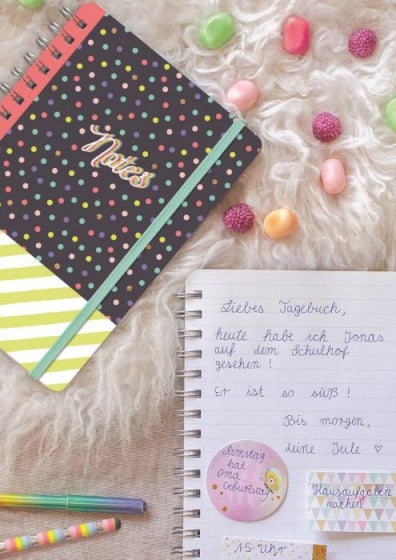 Notes
Liebes Tagebuch,
heute habe ich Jonas
auf dem Schulhof
gesehen !
Er ist so süß !
Bis morgen,
deine Jule ♡
Samstag
hat
Oma
Geburtstag
Hausaufgaben
machen
15 Uhr